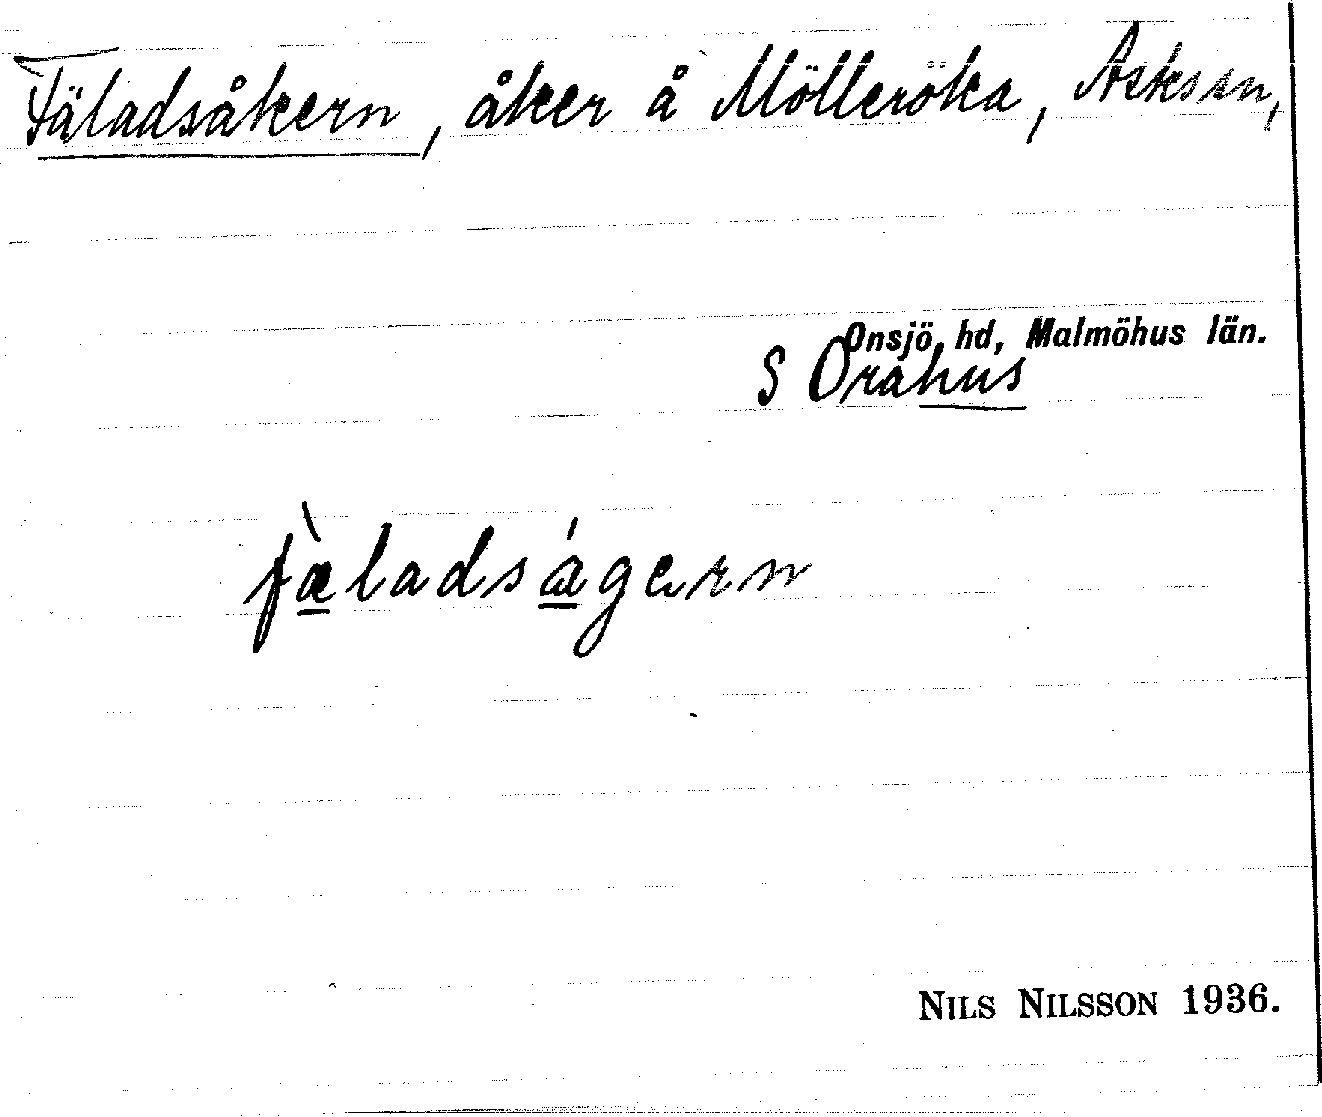 Fäladsåkern, åker å Mölleröka, Asksn,
Onsjö hd, Malmöhus län.
S Orahus
fæ̀ladságern
NILS NILSSON 1936.